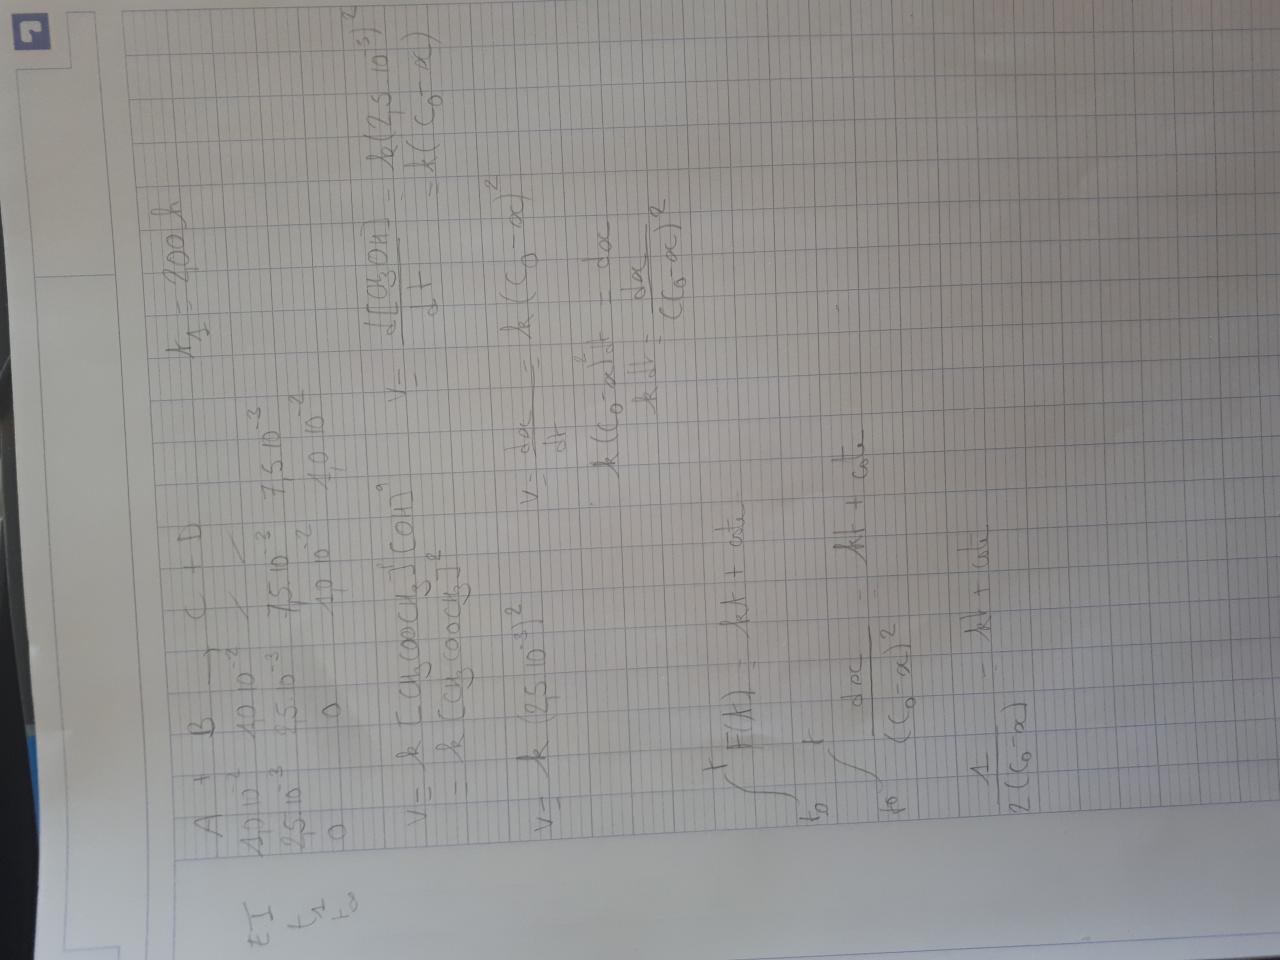 A + B → C + D t1 = 200h
EI 1,0 10^-2 1,0 10^-2 / /
t1 2,5 10^-3 2,5 10^-3 7,5 10^-3 7,5 10^-3
t∞ 0 0 1,0 10^-2 1,0 10^-2
v = k [CH3COOCH3]^p [OH]^q v = d[CH3OH]/dt = k(2,5 10^-3)^2
= k [CH3COOCH3]^2 = k(C0-x)
v = k (2,5 10^-3)^2 v = dx/dt = k (C0-x)^2
k(C0-x)^2 dt = dx
k dt = dx/(C0-x)^2
∫_t0^t F(t) = kt + cste
∫_t0^t dx/(C0-x)^2 = kt + cste
1/2(C0-x) = kt + cste